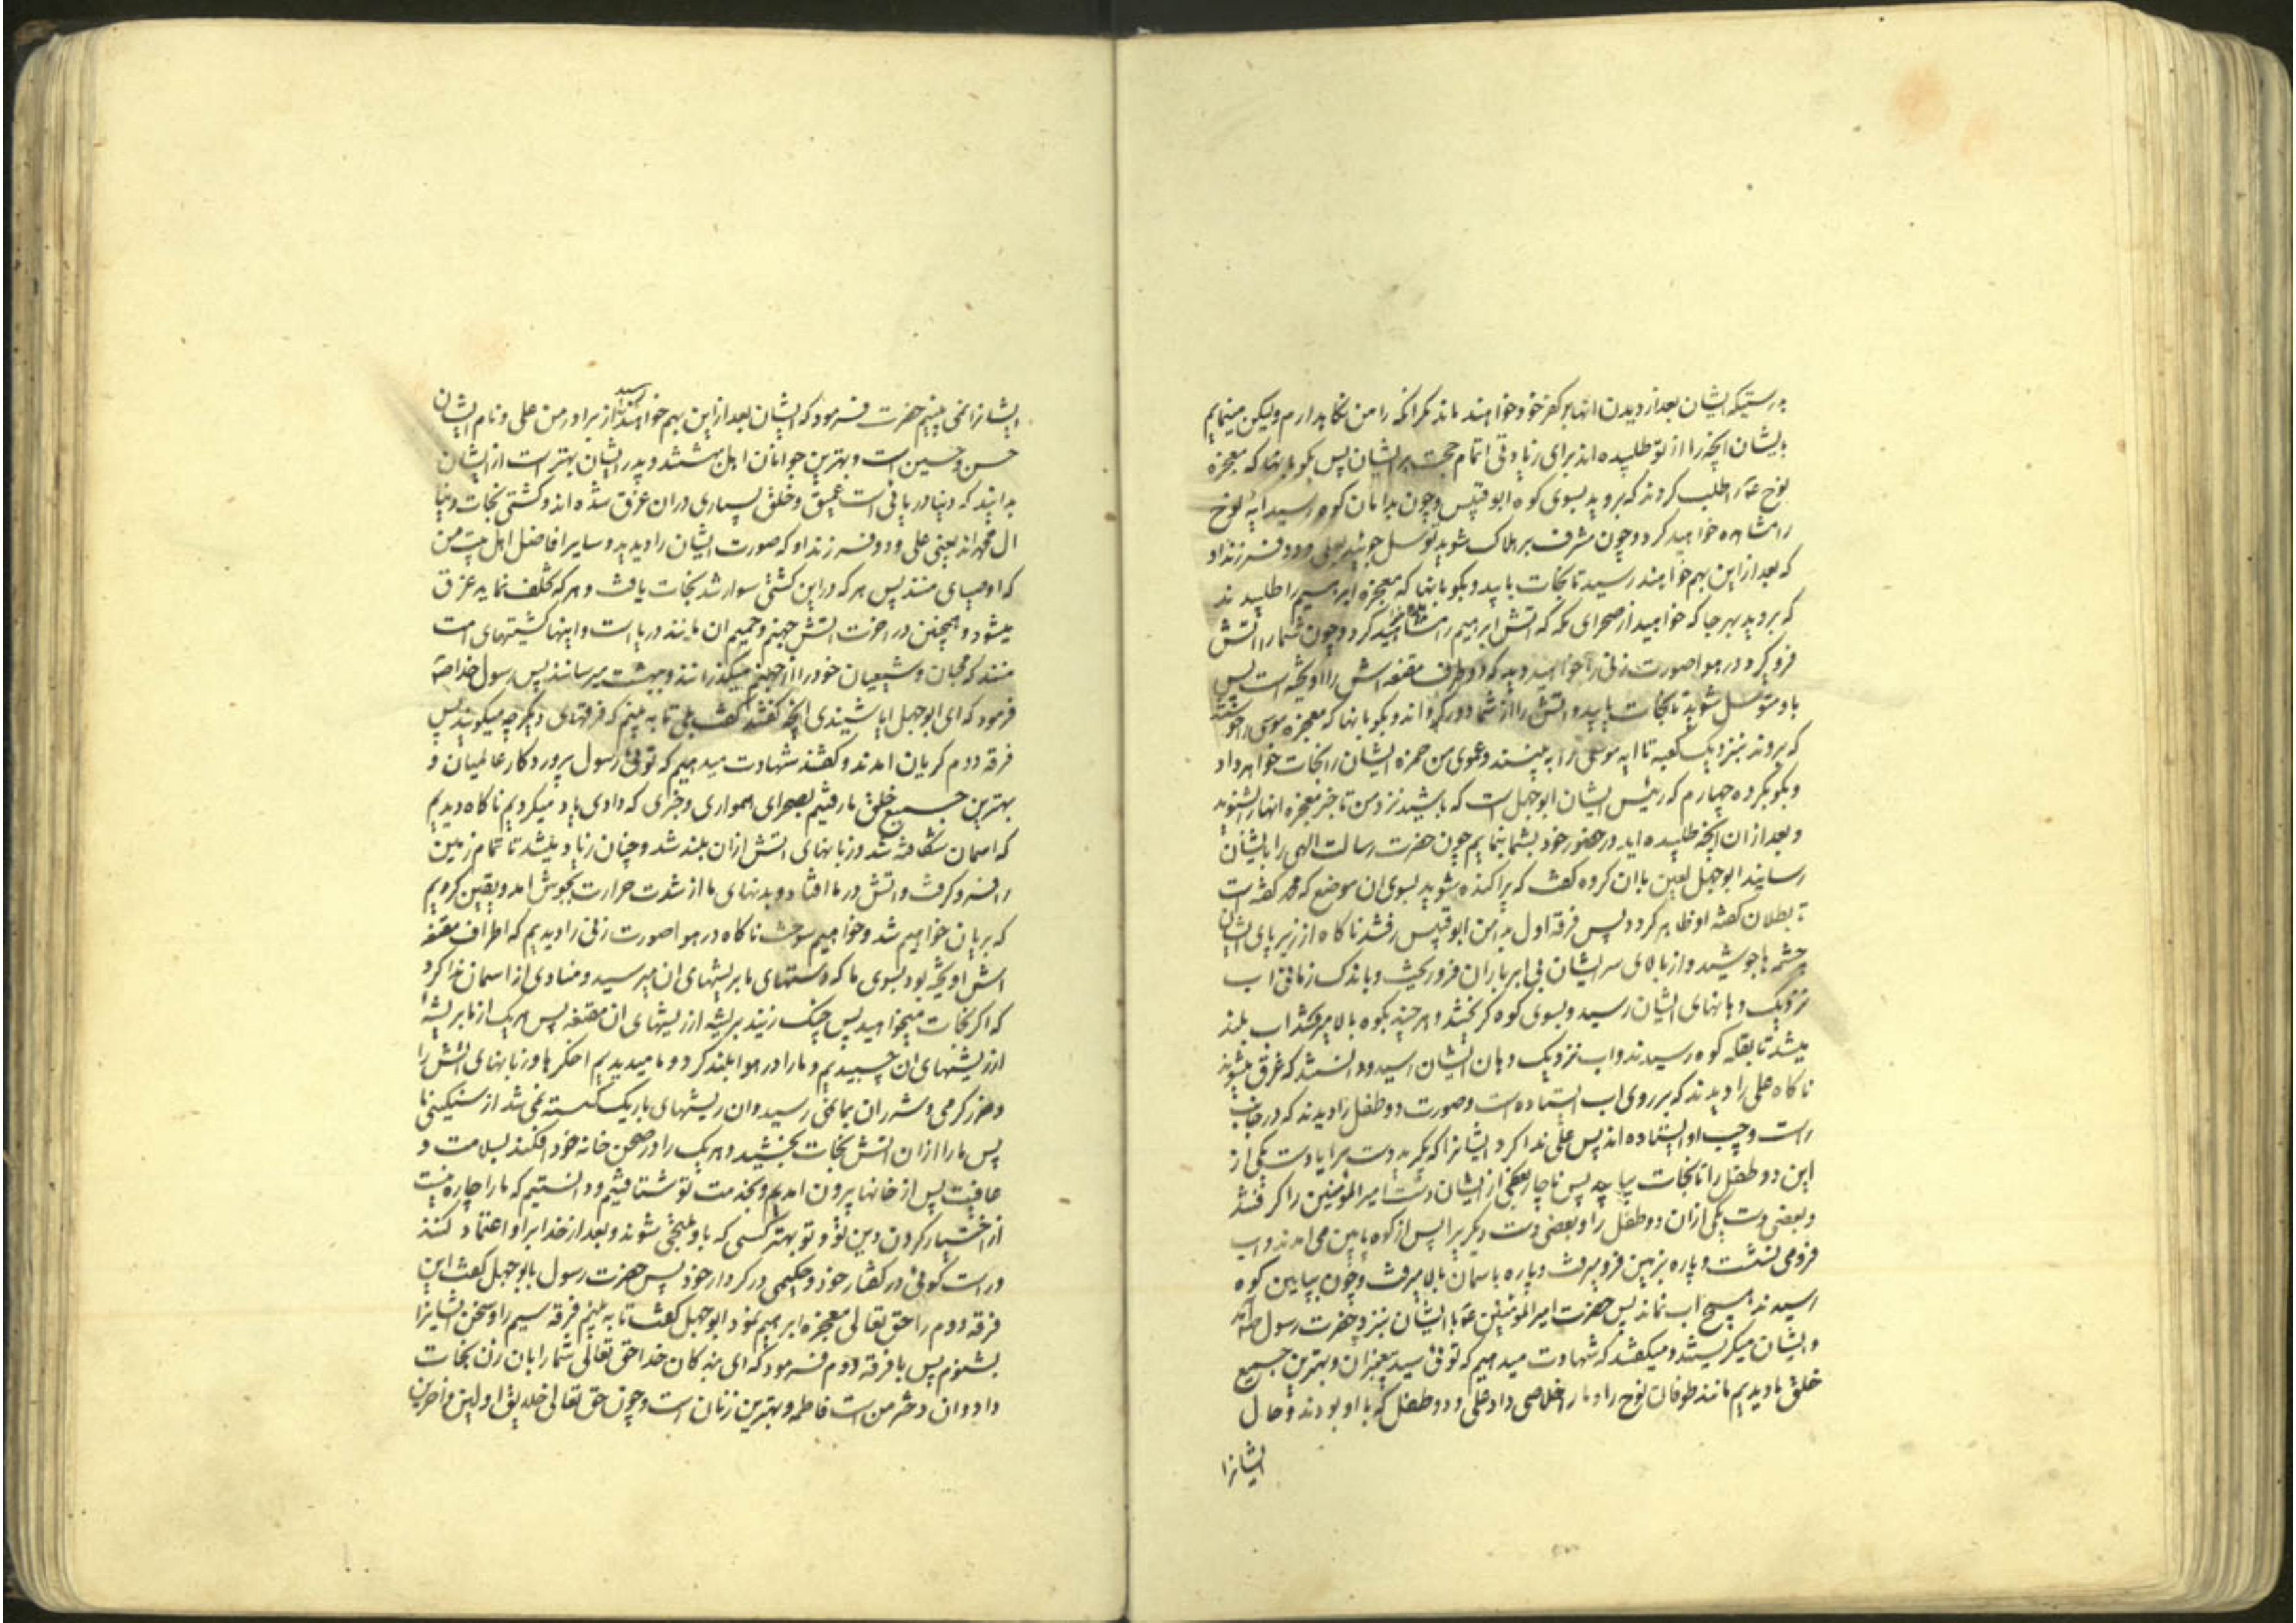 بدرستیکه ایشان بعد از دیدن انها بر کفر خود خواهند ماند مکر انکه را من نکاهدارم ولیکن مینمایم
بایشان انچه را از تو طلبیده اند برای زیادتی اتمام حجت بر ایشان پس بکو بانها که معجزه
نوح ع را طلب کردند که بروید بسوی کوه ابوقبیس وچون بدامان کوه رسید ایه نوح
را مشاهده خواهید کرد وچون مشرف بر هلاک شوید توسل جوئید بعلی ودو فرزند او
که بعد از این بهم خواهند رسید تا نجات یابید وبکو بانها که معجزه ابراهیم را طلبیدند
که بروید بهر جا که خواهید از صحرای مکه که اتش ابراهیم را مشاهده خواهید کرد وچون شما را اتش
فرو کیرد در هوا صورت زنی را خواهید دید که دو طرف مقنعه اش را اویخته است پس
باو متوسل شوید تا نجات یابید واتش را از شما دور کرداند وبکو بانها که معجزه موسی را خواستند
که بروند بنزدیک کعبه تا ایه موسی را به بینند وعموی من حمزه ایشان را نجات خواهد داد
وبکو بکروه چهارم که رئیس ایشان ابوجهل است که باشید نزد من تا خبر معجزه انها را بشنوید
وبعد از ان انچه طلبیده اید در حضور خود بشما بنمایم چون حضرت رسالت الهی را بایشان
رسانید ابوجهل لعین بان کروه کفت که پراکنده شوید بسوی ان موضع که محمد کفته است
تا بطلان کفته او ظاهر کردد پس فرقه اول بدامن ابوقبیس رفتند ناکاه از زیر پای ایشان
چشمه ها جوشید واز بالای سر ایشان بی ابر باران فرو ریخت وباندک زمانی اب
نزدیک دهانهای ایشان رسید وبسوی کوه کریختند وهر چند بکوه بالا میرفتند اب بلند
میشد تا بقله کوه رسیدند واب نزدیک دهان ایشان رسید ودانستند که غرق میشوند
ناکاه علی را دیدند که بر روی اب ایستاده است وصورت دو طفل را دیدند که در جانب
راست وچپ او ایستاده اند پس علی ندا کرد ایشانرا که بکیرید دست مرا یا دست یکی از
این دو طفل را تا نجات بیابید پس ناچار بعضی از ایشان دست امیرالمؤمنین را کرفتند
وبعضی دست یکی از ان دو طفل را وبعضی دست دیکریرا پس از کوه پایین می امدند واب
فرو می نشست وپاره بزمین فرو میرفت وپاره باسمان بالا میرفت وچون بپایین کوه
رسیدند هیچ اب نماند پس حضرت امیرالمؤمنین ع با ایشان بنزد حضرت رسول ص امد
وایشان میکریستند ومیکفتند که شهادت میدهیم که توئی سید پیغمبران وبهترین جمیع
خلق ما دیدیم مانند طوفان نوح را وما را خلاصی داد علی ودو طفل که با او بودند وحال
ایشانرا
ایشانرا نمی بینیم حضرت فرمود که ایشان بعد از این بهم خواهند رسید از برادر من علی ونام ایشان
حسن وحسین است وبهترین جوانان اهل بهشتند وپدر ایشان بهتر است از ایشان
بدانید که دنیا دریائی است عمیق وخلق بسیاری در ان غرق شده اند وکشتی نجات دنیا
ال محمد اند یعنی علی ودو فرزند او که صورت ایشان را دیدید وسایر افاضل اهل بیت من
که اوصیای منند پس هر که در این کشتی سوار شد نجات یافت وهر که تخلف نماید غرق
میشود وهمچنین در اخرت اتش جهنم وحمیم ان مانند دریا است واینها کشتیهای امت
منند که محبان وشیعیان خود را از جهنم میکذرانند وببهشت میرسانند پس رسول خدا ص
فرمود که ای ابوجهل ایا شنیدی انچه کفتند کفت بلی تا به بینم که فرقهای دیکر چه میکویند پس
فرقه دوم کریان امدند وکفتند شهادت میدهیم که توئی رسول پروردکار عالمیان و
بهترین جمیع خلق ما رفتیم بصحرای همواری وخبری که دادی یاد میکردیم ناکاه دیدیم
که اسمان شکافته شد وزبانهای اتش از ان بلند شد وچنان زیاد میشد تا تمام زمین
را فرو کرفت واتش در ما افتاد وبدنهای ما از شدت حرارت بجوش امد ویقین کردیم
که بریان خواهیم شد وخواهیم سوخت ناکاه در هوا صورت زنی را دیدیم که اطراف مقنعه
اش اویخته بود بسوی ما که دستهای ما بریشهای ان میرسید ومنادی از اسمان ندا کرد
که اکر نجات میخواهید پس چنک زنید بریشه از ریشهای ان مقنعه پس هر یک از ما بریشهٔ
از ریشهای ان چسبیدیم وما را در هوا بلند کرد وما میدیدیم اخکرها وزبانهای اتش را
وضرر کرمی وشرر ان بما نمی رسید وان ریشهای باریک کسسته نمی شد از سنکینی ما
پس ما را از ان اتش نجات بخشید وهر یک را در صحن خانه خود افکند بسلامت و
عافیت پس از خانها بیرون امدیم وبخدمت تو شتافتیم ودانستیم که ما را چاره نیست
از اختیار کردن دین تو وتو بهتر کسی که باو ملتجی شوند وبعد از خدا بر او اعتماد کنند
وراست کوئی در کفتار خود وحکیمی در کردار خود پس حضرت رسول بابوجهل کفت این
فرقه دوم را حق تعالی معجزه ابراهیم نمود ابوجهل کفت تا به بینم فرقه سیم را وسخن ایشانرا
بشنوم پس با فرقه دوم فرمود که ای بندکان خدا حق تعالی شما را بان زن نجات
داد وان دختر من است فاطمه وبهترین زنان است وچون حق تعالی خلایق اولین واخرین